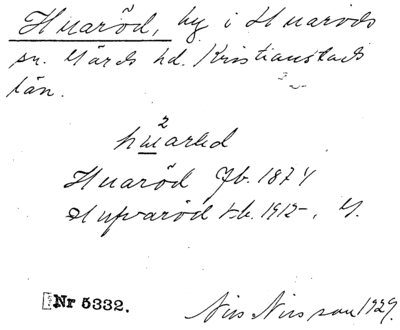 Huaröd, by i Huaröds
sn. Gärds hd. Kristianstads
län.
2
Huaröd Jb. 1874
Hufvaröd 1912
Nr 5332.
Nils Nilsson 1929.